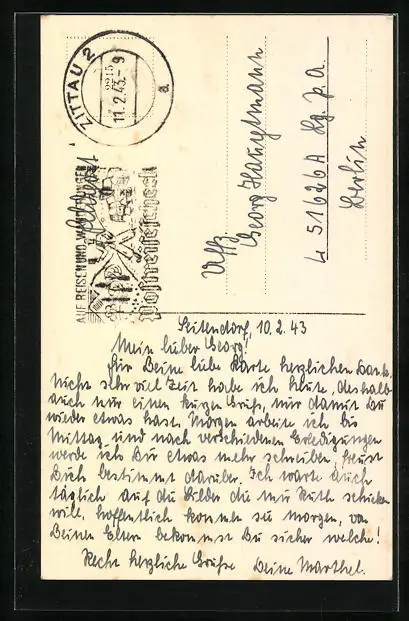 ZITTAU 2
2215
11.2.43.-9
a
Feldpost
AUF REISEN UND WANDERUNGEN
Postreisescheck
Uffz.
Georg Hauptmann
L 51626A Lg.p.A.
Berlin
Seitendorf, 10.2.43
Mein lieber Georg!
Für Deine liebe Karte herzlichen Dank.
Nicht sehr viel Zeit habe ich heute, deshalb
auch nur einen kurzen Gruß, nur damit Du
wieder etwas hast. Morgen arbeite ich bis
Mittag und nach verschiedenen Erledigungen
werde ich Dir etwas mehr schreiben, freust
Dich bestimmt darüber. Ich warte auch
täglich auf die Bilder die mir Ruth schicken
will, hoffentlich kommen sie morgen, von
Deinen Eltern bekommst Du sicher welche!
Recht herzliche Grüße Deine Marthel.